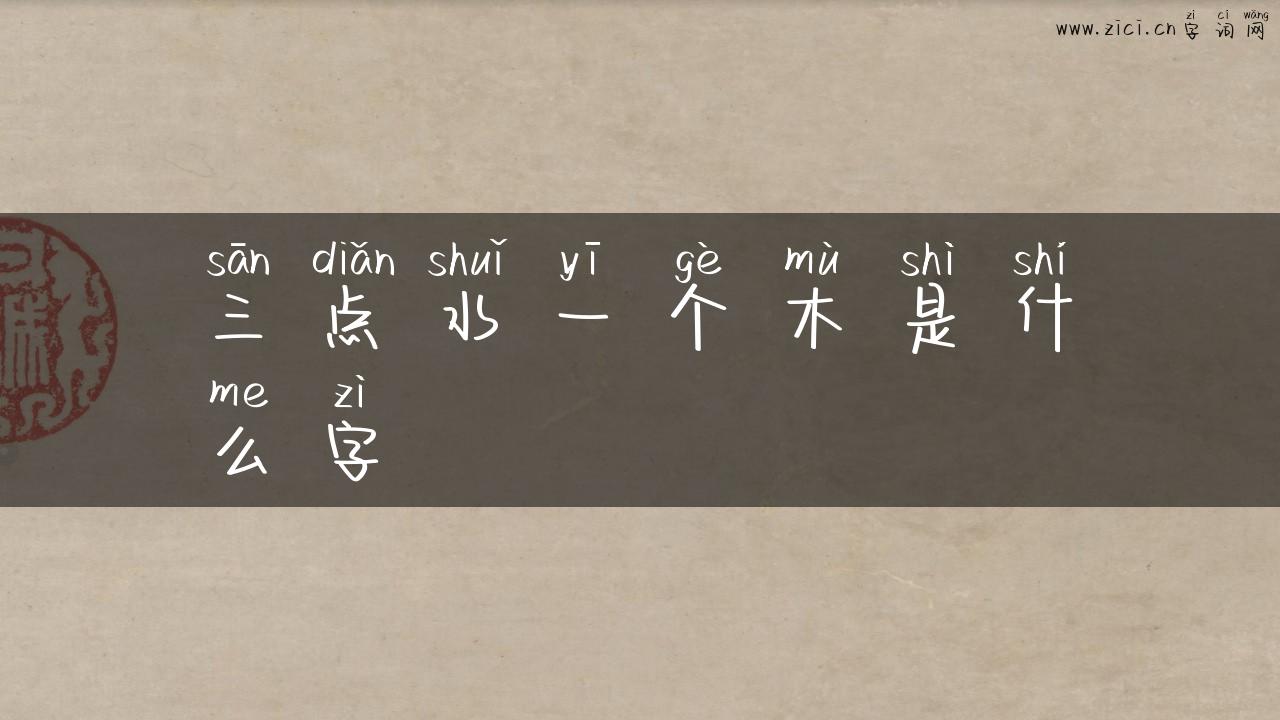 zì cí wǎng
www.zici.cn 字词网
sān diǎn shuǐ yī gè mù shì shí
三点水一个木是什
me zì
么字